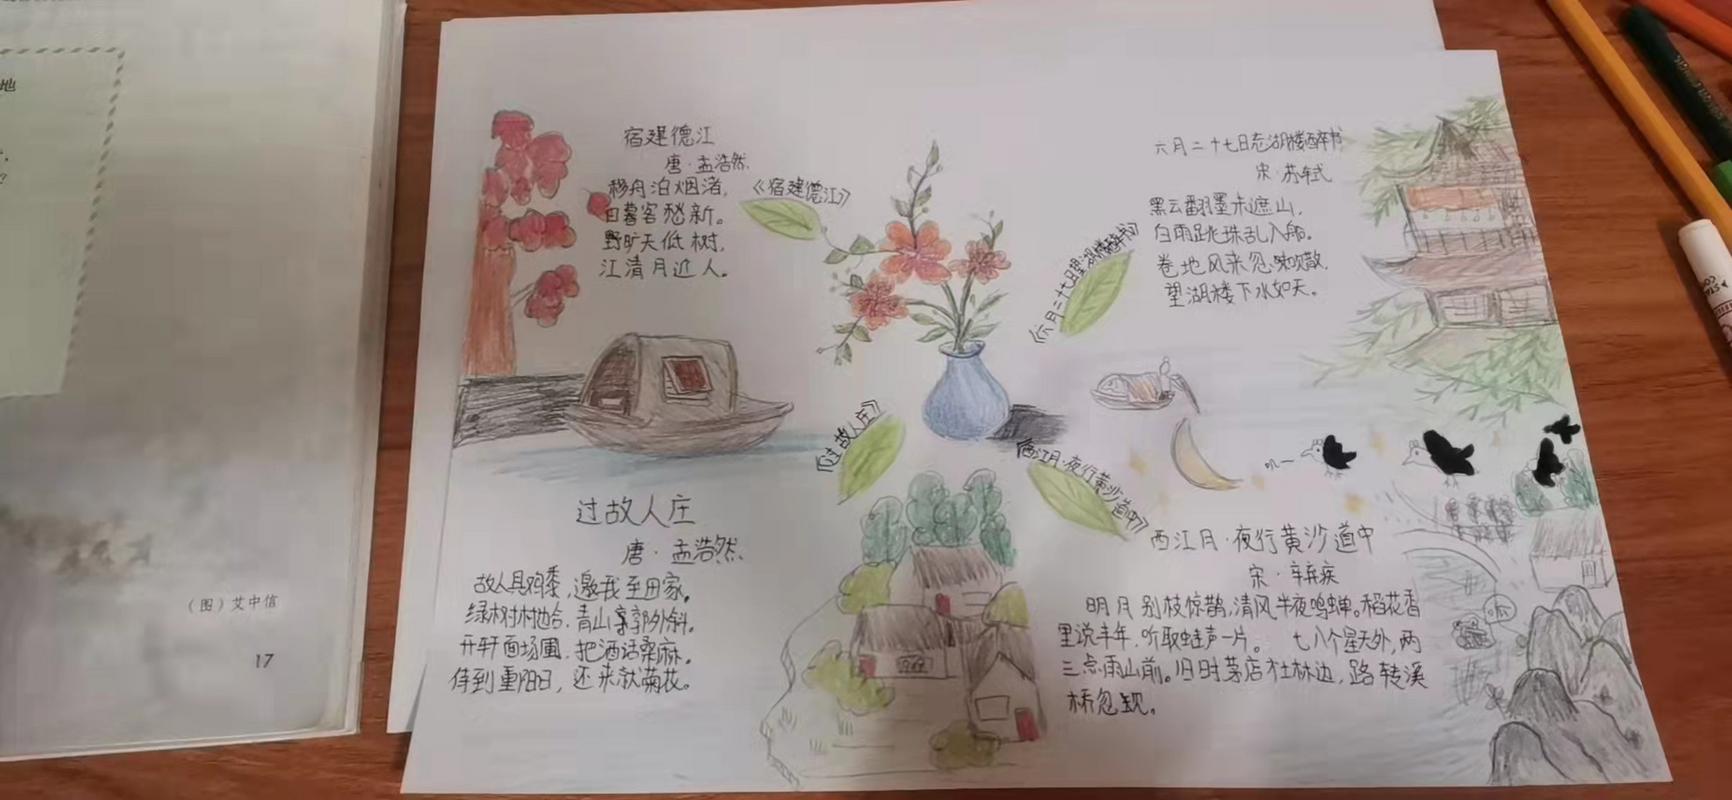 地
?
(图)艾中信
17
宿建德江
唐·孟浩然
移舟泊烟渚,
日暮客愁新。
野旷天低树,
江清月近人。
《宿建德江》
《六月二十七日望湖楼醉书》
六月二十七日望湖楼醉书
宋·苏轼
黑云翻墨未遮山,
白雨跳珠乱入船。
卷地风来忽吹散,
望湖楼下水如天。
《过故人庄》
《西江月·夜行黄沙道中》
过故人庄
唐·孟浩然
故人具鸡黍,邀我至田家。
绿树村边合,青山郭外斜。
开轩面场圃,把酒话桑麻。
待到重阳日,还来就菊花。
叽一
西江月·夜行黄沙道中
宋·辛弃疾
明月别枝惊鹊,清风半夜鸣蝉。稻花香
里说丰年,听取蛙声一片。 七八个星天外,两
三点雨山前。旧时茅店社林边,路转溪
桥忽现。
呱